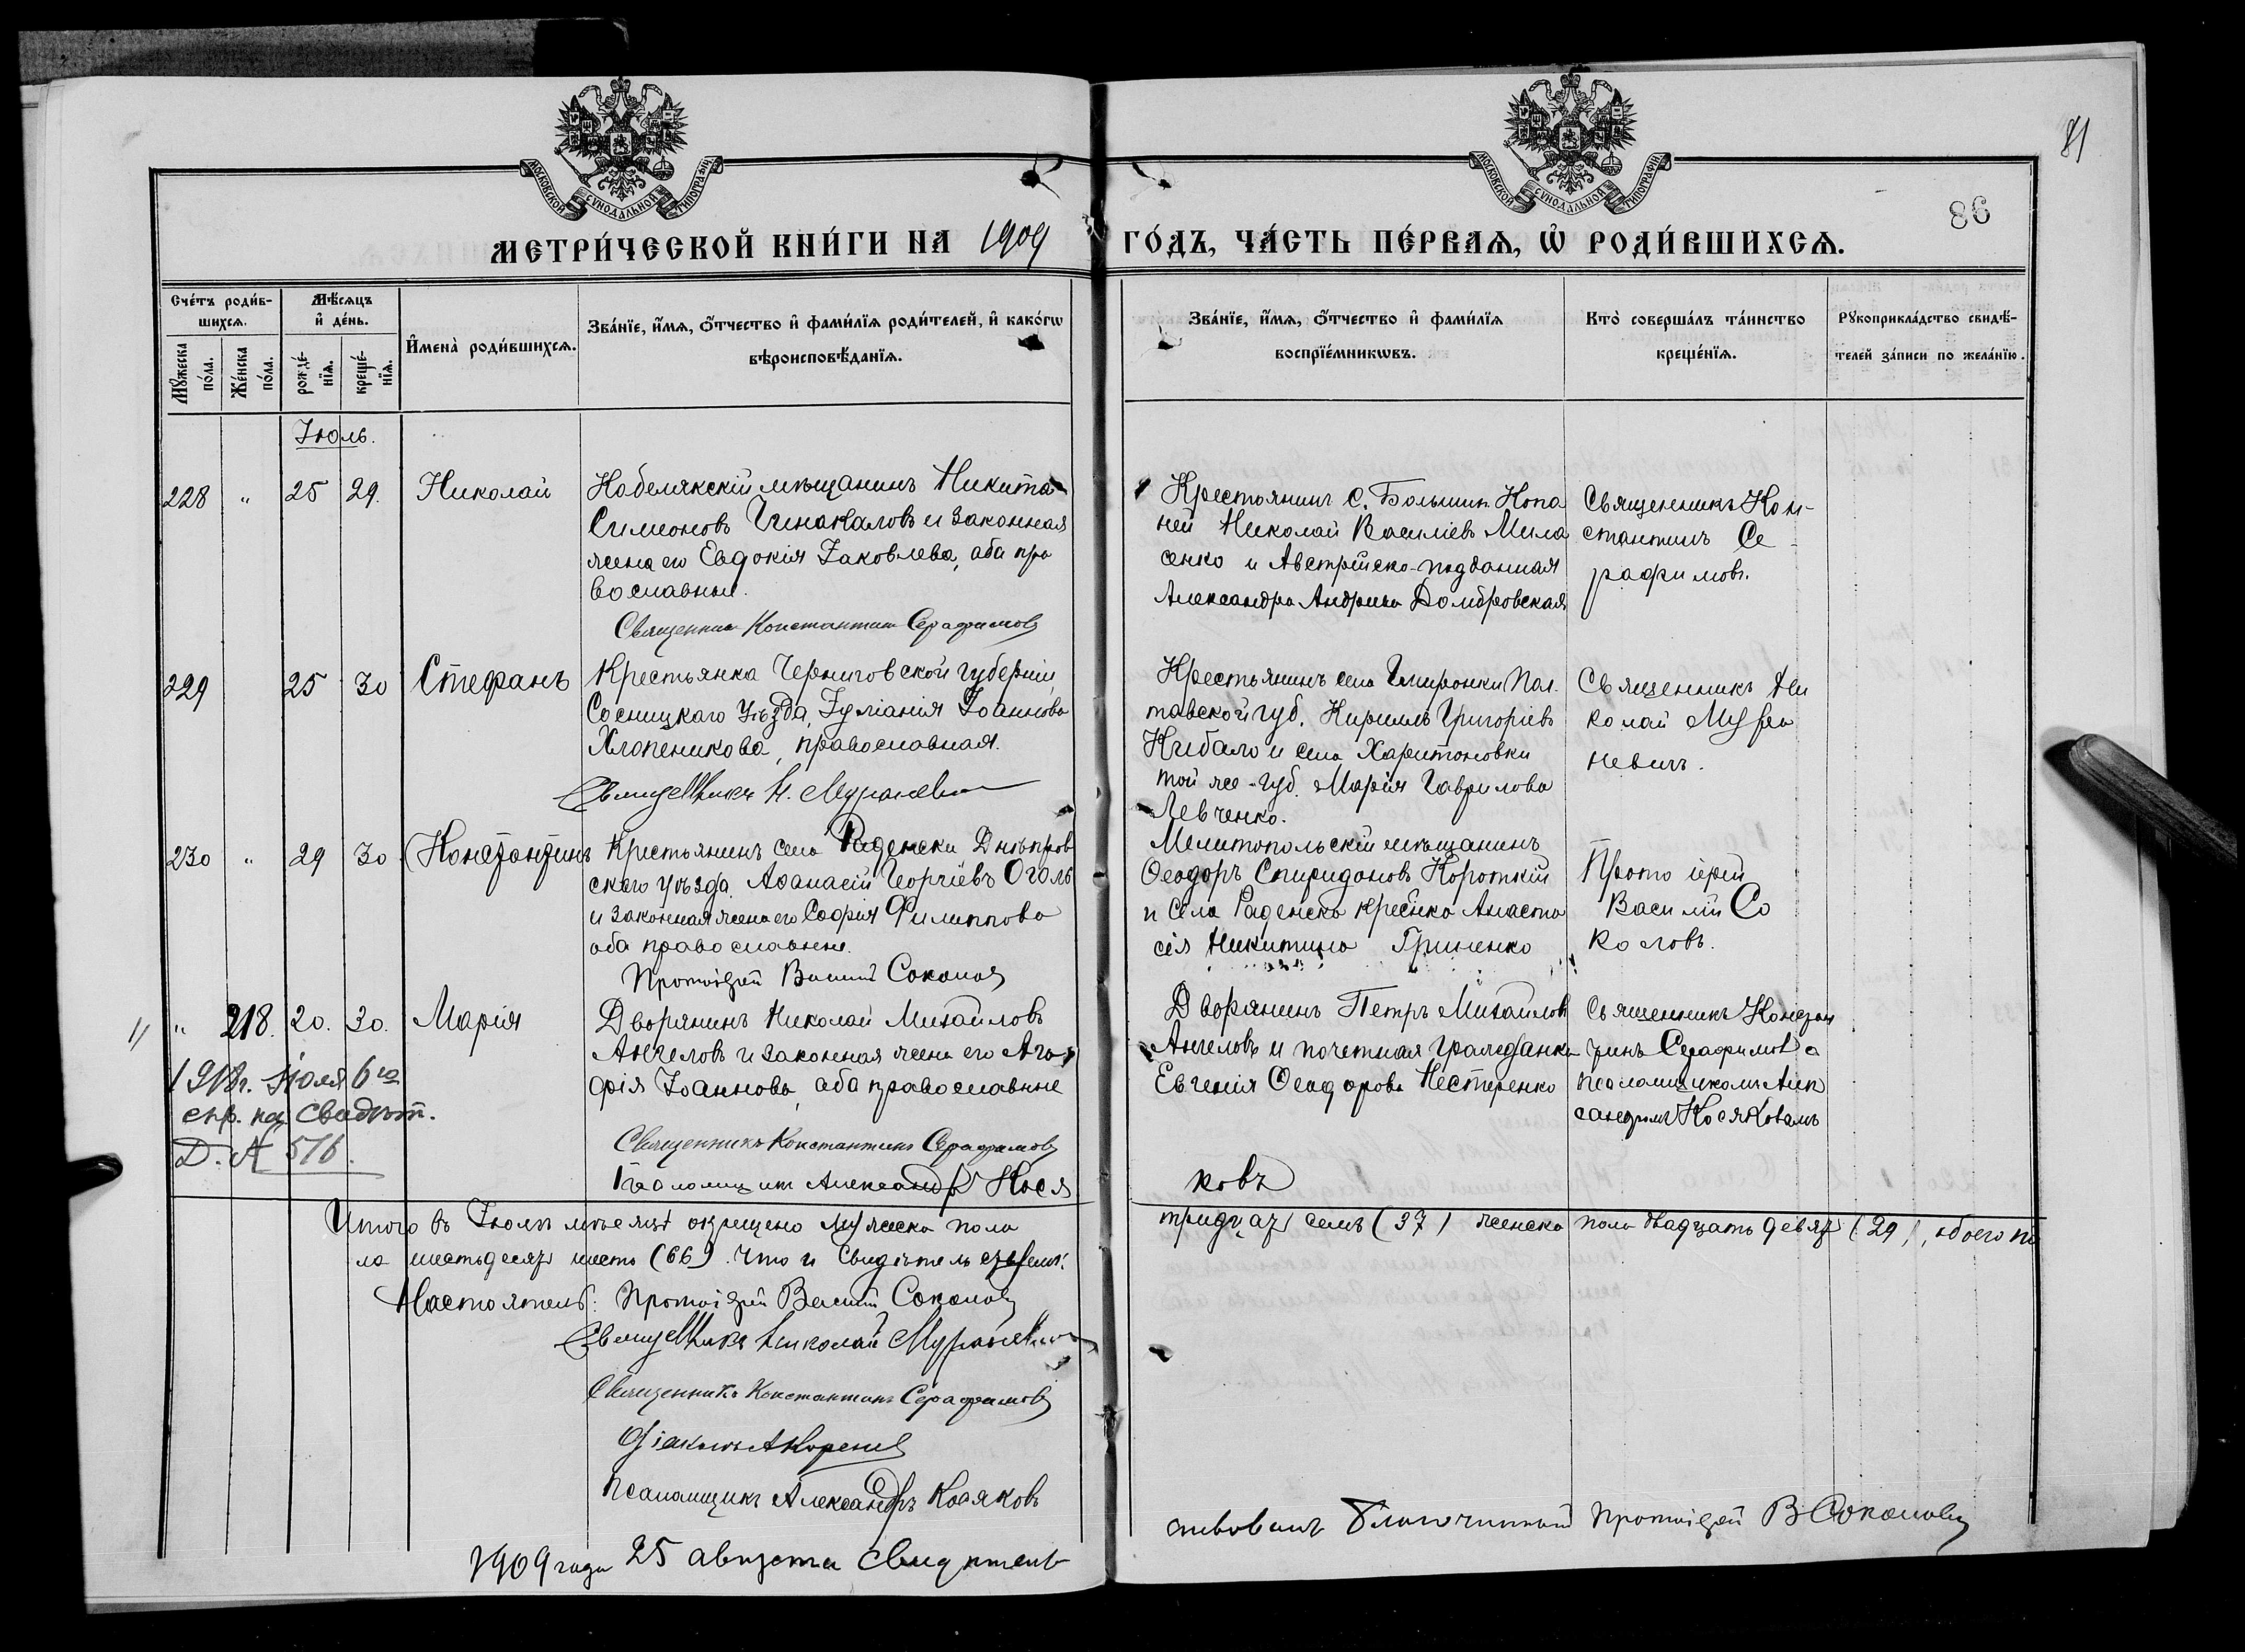 81
86
МОСКОВСКОЙ СѴНОДАЛЬНОЙ ТИПОГРАФІИ
МОСКОВСКОЙ СѴНОДАЛЬНОЙ ТИПОГРАФІИ
МЕТРИ́ЧЕСКОЙ КНИ́ГИ НА 1909 ГО́ДЪ, ЧА́СТЬ ПЕ́РВАѦ, Ѡ҆ РОДИ́ВШИХСѦ.
Сче́тъ роди́в-
шихсѧ.
Мѹ́жеска по́ла.
Же́нска по́ла.
Мѣ́сѧцъ
и҆ де́нь.
рожде́-нїѧ.
креще́-нїѧ.
И҆мена̀ роди́вшихсѧ.
Зва́нїе, и҆́мѧ, ѻ҆́тчество и҆ фами́лїѧ роди́телей, и҆ како́гѡ
вѣроисповѣ́данїѧ.
Зва́нїе, и҆́мѧ, ѻ҆́тчество и҆ фами́лїѧ
воспрїе́мникѡвъ.
Кто̀ соверша́лъ та́инство
креще́нїѧ.
Рѹкоприкла́дство свидѣ́-
телей за́писи по жела́нїю.
Іюль.
228 " 25 29. Николай
Кобелякскій мѣщанинъ Никита
Симеоновъ и законная
жена его Евдокія Іаковлева, оба пра
вославные.
Священникъ Константинъ Серафимовъ
Крестьянинъ с. Большихъ Копа
ней Николай Василіевъ Мила
сенко и Австрійско-подданная
Александра Андреева Домбровская
Священникъ Кон-
стантинъ Се-
рафимовъ.
229 25 30 Стефанъ
Крестьянка Черниговской губерніи,
Сосницкаго уѣзда, Іуліанія Іоаннова
Хлопеникова, православная.
Священникъ Н.
Крестьянинъ села Пол-
тавской губ. Кириллъ Григоріевъ
Кибало и села Харитоновки
той же губ. Марія Гаврилова
Левченко.
Священникъ Ни
колай
невичъ.
230 " 29 30 Константинъ
Крестьянинъ села Раденска Днѣпров
скаго уѣзда Аѳанасій Георгіевъ Оголь
и законная жена его Софія Филиппова
оба православные.
Протоіерей Василій Соколовъ
Мелитопольскій мѣщанинъ
Ѳеодоръ Спиридоновъ Короткій
и села Раденска кресткa Анаста
сія Никитина Гриненко
Прото іерей
Василій Со
коловъ.
" 218. 20. 30. Марія
Дворянинъ Николай Михайловъ
Ангеловъ и законная жена его Ага
фія Іоаннова, оба православные
Священникъ Константинъ Серафимовъ
Псаломщикъ Александръ Кося
ковъ
Дворянинъ Петръ Михайловъ
Ангеловъ и почетная гражданка
Евгенія Ѳеодорова Нестеренко
Священникъ Констан
тинъ Серафимовъ съ
псаломщикомъ Алек
сандромъ Косяковымъ
Іюля 6го
Д. № 516.
Итого въ Іюлѣ мѣсяцѣ окрещено мужеска пола тридцать семь (37) женска пола двадцать девять (29), обоего по
ла шестьдесятъ шесть (66). Что и свидѣтельствуемъ:
Настоятель: Протоіерей Василій Соколовъ
Священникъ Николай
Священникъ Константинъ Серафимовъ
Діаконъ
Псаломщикъ Александръ Косяковъ
1909 года 25 августа свидѣтель
ствовалъ благочинный Протоіерей В Соколовъ